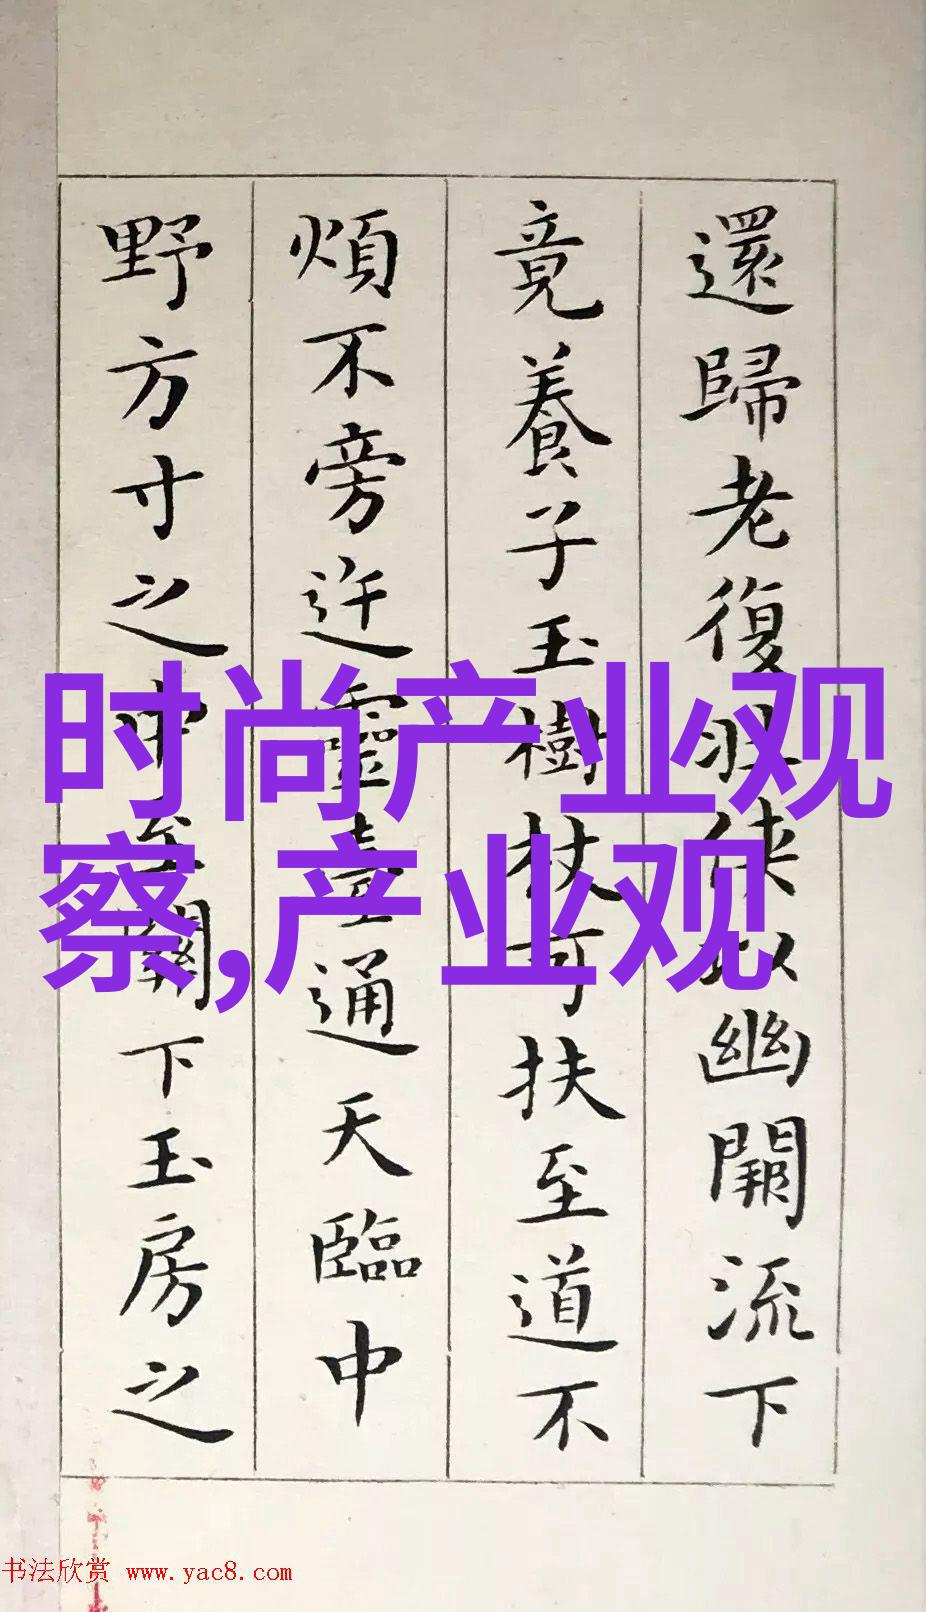 還歸老復俠以幽闕流下
竟養子玉樹杖可扶至道不
煩不旁迕靈臺通天臨中
野方寸之中至關下玉房之
时尚产业观
察,产业观
书法欣赏 www.yac8.com